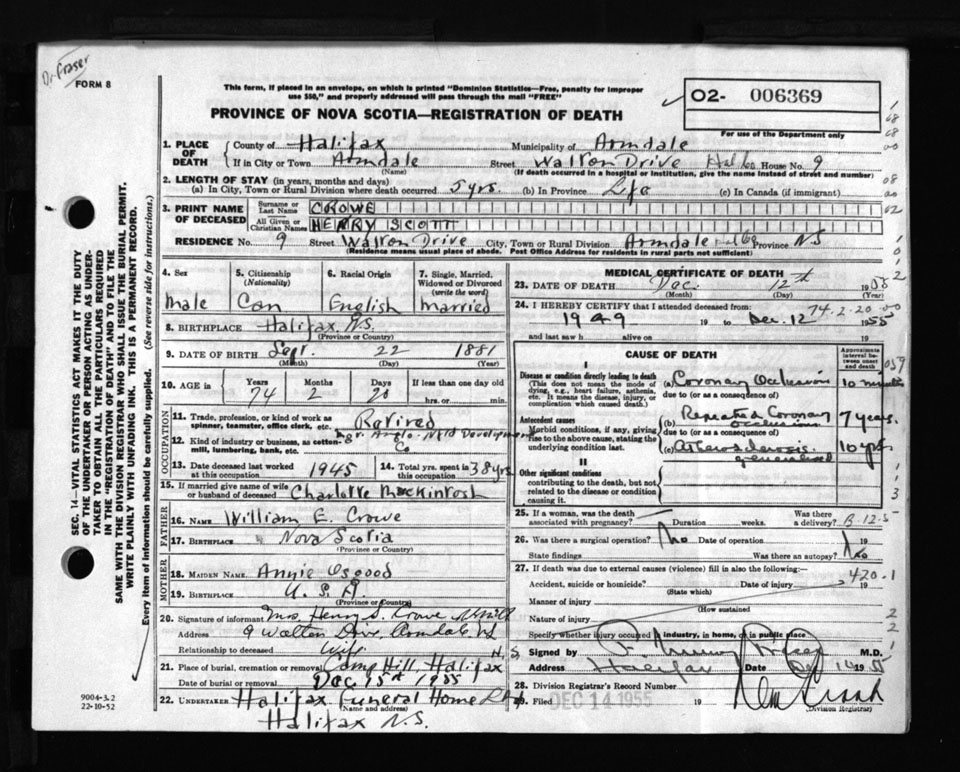 Dr Fraser
FORM 8
This form, if placed in an envelope, on which is printed "Dominion Statistics—Free, penalty for improper
use $50," and properly addressed will pass through the mail "FREE"
O2- 006369
PROVINCE OF NOVA SCOTIA—REGISTRATION OF DEATH
For use of the Department only
1. PLACE OF DEATH
County of Halifax Municipality of Armdale
If in City or Town Armdale Street Walton Drive House No. 9
(Name) (If death occurred in a hospital or institution, give the name instead of street and number)
2. LENGTH OF STAY (in years, months and days)
(a) In City, Town or Rural Division where death occurred 5 yrs. (b) In Province Life (c) In Canada (if immigrant)
3. PRINT NAME OF DECEASED
Surname or Last Name CROWE
All Given or Christian Names HENRY SCOTT
RESIDENCE No. 9 Street Walton Drive City, Town or Rural Division Armdale Province N.S
(Residence means usual place of abode. Post Office Address for residents in rural parts not sufficient)
4. Sex Male
5. Citizenship (Nationality) Can
6. Racial Origin English
7. Single, Married, Widowed or Divorced (write the word) Married
8. BIRTHPLACE Halifax, N.S.
(Province or Country)
9. DATE OF BIRTH Sept. 22 1881
(Month) (Day) (Year)
10. AGE in Years 74 Months 2 Days 20 If less than one day old
hrs. or min.
OCCUPATION
11. Trade, profession, or kind of work as spinner, teamster, office clerk, etc. Retired
12. Kind of industry or business, as cotton-mill, lumbering, bank, etc. Mgr. Anglo-Nfld Development Co
13. Date deceased last worked at this occupation 1945
14. Total yrs. spent in this occupation 38 yrs
15. If married give name of wife or husband of deceased Charlotte Mackintosh
FATHER
16. NAME William E. Crowe
17. BIRTHPLACE Nova Scotia
(Province or Country)
MOTHER
18. MAIDEN NAME Annie Osgood
19. BIRTHPLACE U.S.A.
(Province or Country)
20. Signature of informant Mrs. Henry S. Crowe
Address 9 Walton Drive, Armdale N.S
Relationship to deceased Wife
21. Place of burial, cremation or removal Camp Hill, Halifax N.S.
Date of burial or removal Dec 15th 1955
22. UNDERTAKER Halifax Funeral Home Ltd
(Name and address)
Halifax N.S.
MEDICAL CERTIFICATE OF DEATH
23. DATE OF DEATH Dec. 12th 1955
(Month) (Day) (Year)
24. I HEREBY CERTIFY that I attended deceased from 74.2.20
1949 19 to Dec. 12 1955
and last saw h alive on 19
CAUSE OF DEATH
Approximate interval between onset and death
I
Disease or condition directly leading to death
(This does not mean the mode of dying, e.g., heart failure, asthenia, etc. It means the disease, injury, or complication which caused death.)
(a) Coronary Occlusion 10 minutes
due to (or as a consequence of)
Antecedent causes
Morbid conditions, if any, giving rise to the above cause, stating the underlying condition last.
(b) Repeated Coronary occlusions 7 years.
due to (or as a consequence of)
(c) Atherosclerosis generalized 10 yrs
II
Other significant conditions
contributing to the death, but not related to the disease or condition causing it.
25. If a woman, was the death associated with pregnancy? Duration weeks. Was there a delivery?
26. Was there a surgical operation? No Date of operation 19
State findings Was there an autopsy? No
27. If death was due to external causes (violence) fill in also the following:—
420.1
Accident, suicide or homicide? Date of injury 19
(State which)
Manner of injury
(How sustained
Nature of injury
Specify whether injury occurred in industry, in home, or in public place
Signed by M.D.
Address Halifax Date Dec 14 1955
28. Division Registrar's Record Number
29. Filed DEC 14 1955 19
(Division Registrar)
SEC. 14—VITAL STATISTICS ACT MAKES IT THE DUTY
OF THE UNDERTAKER OR PERSON ACTING AS UNDER-
TAKER TO OBTAIN ALL THE PARTICULARS REQUIRED
IN THE "REGISTRATION OF DEATH" AND TO FILE THE
SAME WITH THE DIVISION REGISTRAR WHO SHALL ISSUE THE BURIAL PERMIT.
WRITE PLAINLY WITH UNFADING INK. THIS IS A PERMANENT RECORD.
Every item of information should be carefully supplied. (See reverse side for instructions.)
9004-3.2
22-10-52